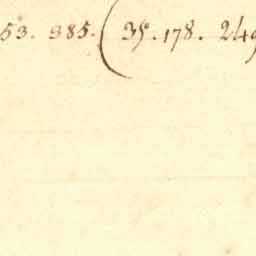 53. 385. ( 35. 178. 249